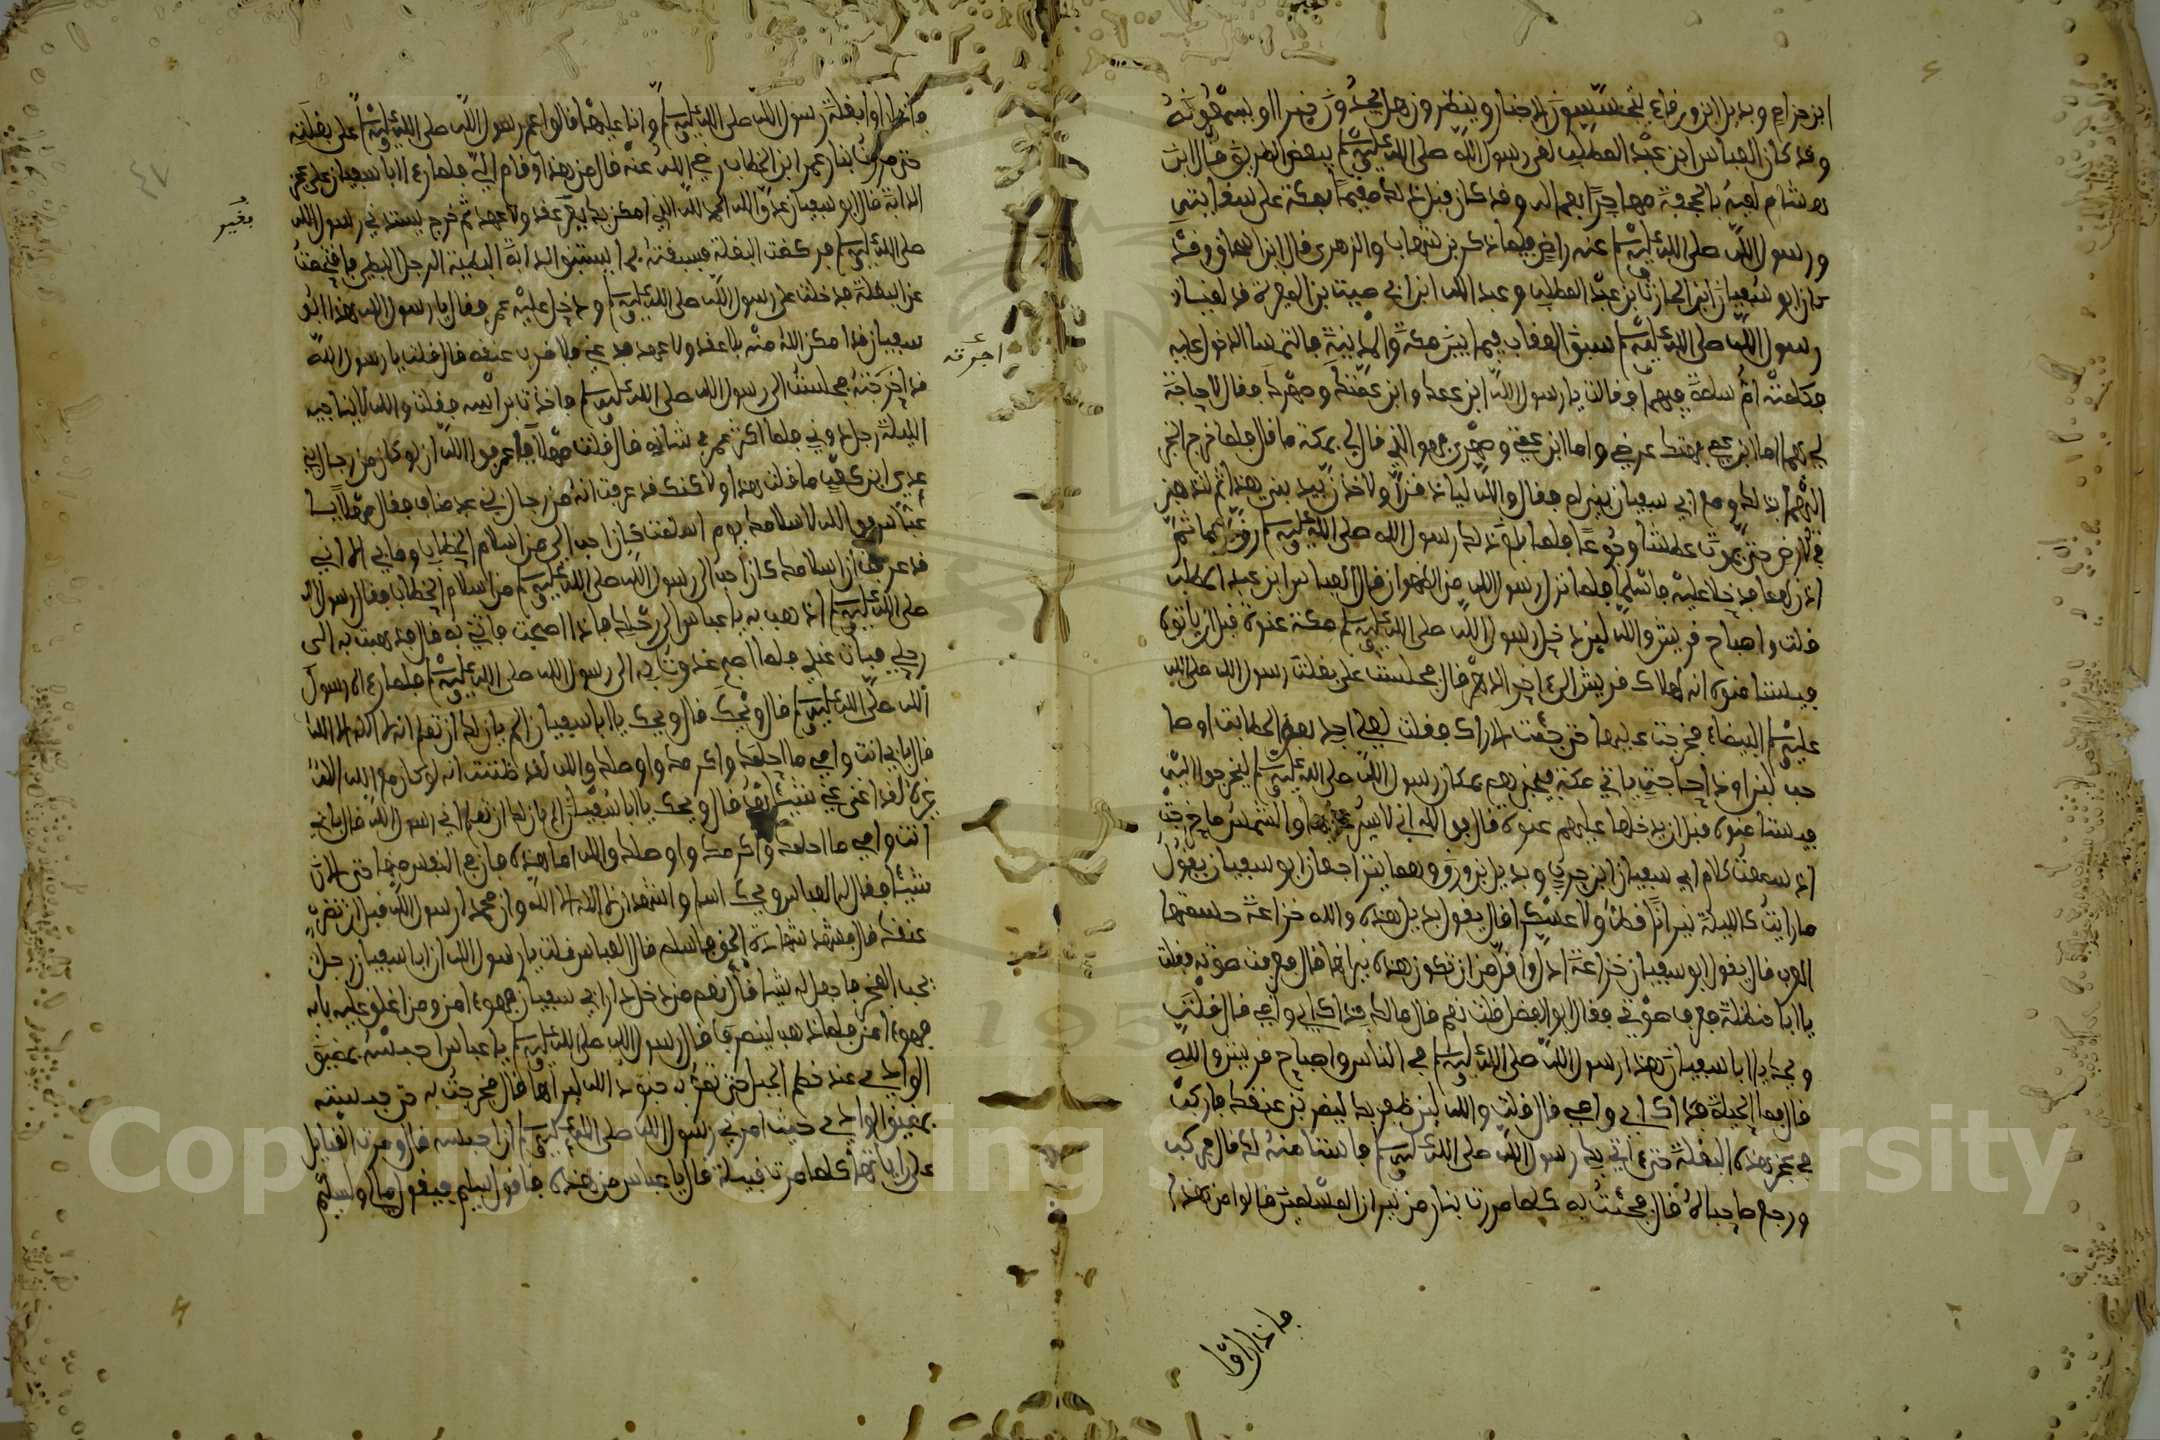 ابن حزام وبديل ابن ورقاء يتحسسون الاخبار وينظرون هل يجدون خبرا او يسمعونه
وقد كان العباس ابن عبد المطلب لقي رسول الله صلى الله عليه وسلم ببعض الطريق قال ابن
هشام لقيه بالجحفة مهاجرا بعياله وقد كان قبل ذلك مقيما بمكة على سقايته
ورسول الله صلى الله عليه وسلم عنه راض فيما ذكر بن شهاب والزهري قال ابن اسحاق وقد
كان ابو سفيان ابن الحارث بن عبد المطلب وعبد الله ابن ابي امية بن المغيرة قد لقيا
رسول الله صلى الله عليه وسلم بنيق العقاب فيما بين مكة والمدينة فالتمسا الدخول عليه
فكلمته ام سلمة فيهما وقالت يا رسول الله ابن عمك وابن عمتك وصهرك فقال لا حاجة
لي بهما اما ابن عمي فهتك عرضي واما ابن عمتي وصهري فهو الذي قال لي بمكة ما قال فلما خرج الخبر
اليهما بذلك ومع ابي سفيان بني له فقال والله لياذنن لي او لاخذن بيد بني هذا ثم لنذهبن
في الارض حتى نموت عطشا وجوعا فلما بلغ ذلك رسول الله صلى الله عليه وسلم رق لهما ثم
اذن لهما فدخلا عليه فاسلما فلما نزل رسول الله مر الظهران قال العباس ابن عبد المطلب
قلت واصباح قريش والله لين دخل رسول الله صلى الله عليه وسلم مكة عنوة قبل ان ياتوه
فيستامنوه انه لهلاك قريش الى اخر الدهر قال فجلست على بغلة رسول الله صلى الله
عليه وسلم البيضاء فخرجت عليها حتى جئت الاراك فقلت لعلي اجد بعض الحطابة او صا
حب لبن او ذا حاجة ياتي مكة فيخبرهم بمكان رسول الله صلى الله عليه وسلم ليخرجوا اليه
فيستامنوه قبل ان يدخلها عليهم عنوة قال فوالله اني لاسير عليها والتمس ما خرجت
اذ سمعت كلام ابي سفيان ابن حرب وبديل بن ورقا وهما يتراجعان ابو سفيان يقول
ما رايت كالليلة نيرانا قط ولا عسكرا قال يقول بديل هذه والله خزاعة حمشتها
الحرب قال يقول ابو سفيان خزاعة اذل واقل من ان تكون هذه نيرانها قال فعرفت صوته فقلت
يا ابا حنظلة فعرف صوتي فقال ابو الفضل قلت نعم قال مالك فداك ابي وامي قال قلت
ويحك يا ابا سفيان هذا رسول الله صلى الله عليه وسلم في الناس واصباح قريش والله
قال فما الحيلة فداك ابي وامي قال قلت والله لين ظفر بك ليضربن عنقك فاركب
في عجز هذه البغلة حتى اتي بك رسول الله صلى الله عليه وسلم فاستامنه لك قال فركب
ورجع صاحباه قال فجئت به كلما مررت بنار من نيران المسلمين قالوا من هذا
فاذا راوا
فاذا راوا بغلة رسول الله صلى الله عليه وسلم وانا عليها قالوا عم رسول الله صلى الله عليه وسلم على بغلته
حتى مررت بنار عمر ابن الخطاب رضي الله عنه قال من هذا وقام الي فلما راى ابا سفيان على عجز
الدابة قال ابو سفيان عدو الله الحمد لله الذي امكن بك بغير عقد ولا عهد ثم خرج يشتد نحو رسول الله
بغير
صلى الله عليه وسلم فركضت البغلة فسبقته بما تسبق الدابة البطيئة الرجل البطي فاقتحمت
عن البغلة فدخلت على رسول الله صلى الله عليه وسلم ودخل عليه عمر فقال يا رسول الله هذا ابو
سفيان قد امكن الله منه بلا عقد ولا عهد فدعني فلاضرب عنقه قال قلت يا رسول الله
اجرته
قد اجرته فجلست الى رسول الله صلى الله عليه وسلم فاخذت براسه فقلت والله لا يناجيه
الليلة رجل دوني فلما اكثر عمر في شانه قال قلت مهلا يا عمر فوالله ان لو كان من رجال بني
عدي ابن كعب ما قلت هذا ولاكنك قد عرفت انه من رجال بني عبد مناف فقال مهلا يا
عباس فوالله لاسلامك يوم اسلمت كان احب الي من اسلام الخطاب وما بي الا اني
قد عرفت ان اسلامك كان احب الى رسول الله صلى الله عليه وسلم من اسلام الخطاب فقال رسول الله
صلى الله عليه وسلم اذهب به يا عباس الى رحلك فاذا اصبحت فاتني به قال فذهبت به الى
رحلي فبات عندي فلما اصبح غدوت به الى رسول الله صلى الله عليه وسلم فلما راه رسول
الله صلى الله عليه وسلم قال ويحك قال ويحك يا ابا سفيان الم يان لك ان تعلم انه لا اله الا الله
قال بابي انت وامي ما احلمك واكرمك واوصلك والله لقد ظننت انه لو كان مع الله اله
غيره لقد اغنى عني شيئا بعد قال ويحك يا ابا سفيان الم يان لك ان تعلم اني رسول الله قال بابي
انت وامي ما احلمك واكرمك واوصلك والله اما هذه فان في النفس منها حتى الان
شيئا فقال له العباس ويحك اسلم واشهد ان لا اله الا الله وان محمدا رسول الله قبل ان تضرب
عنقك قال فشهد شهادة الحق فاسلم قال العباس قلت يا رسول الله ان ابا سفيان رجل
يحب الفخر فاجعل له شيا قال نعم من دخل دار ابي سفيان فهو امن ومن اغلق عليه بابه
فهو امن فلما ذهب لينصرف قال رسول الله صلى الله عليه وسلم يا عباس احبسه بمضيق
الوادي عند خطم الجبل حتى تمر به جنود الله فيراها قال فخرجت به حتى حبسته
بمضيق الوادي حيث امرني رسول الله صلى الله عليه وسلم ان احبسه قال ومرت القبايل
على راياتها كلما مرت قبيلة قال يا عباس من هذه فاقول سليم فيقول مالي ولسليم